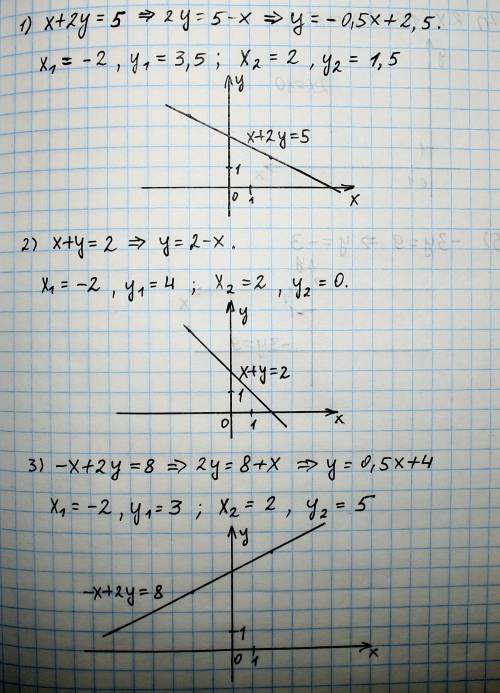 1) x+2y=5 ⇒ 2y=5-x ⇒ y=-0,5x+2,5.
x₁=-2, y₁=3,5; x₂=2, y₂=1,5
y
x+2y=5
1
0 1 x
2) x+y=2 ⇒ y=2-x.
x₁=-2, y₁=4; x₂=2, y₂=0.
y
x+y=2
1
0 1 x
3) -x+2y=8 ⇒ 2y=8+x ⇒ y=0,5x+4
x₁=-2, y₁=3; x₂=2, y₂=5
y
-x+2y=8
1
0 1 x